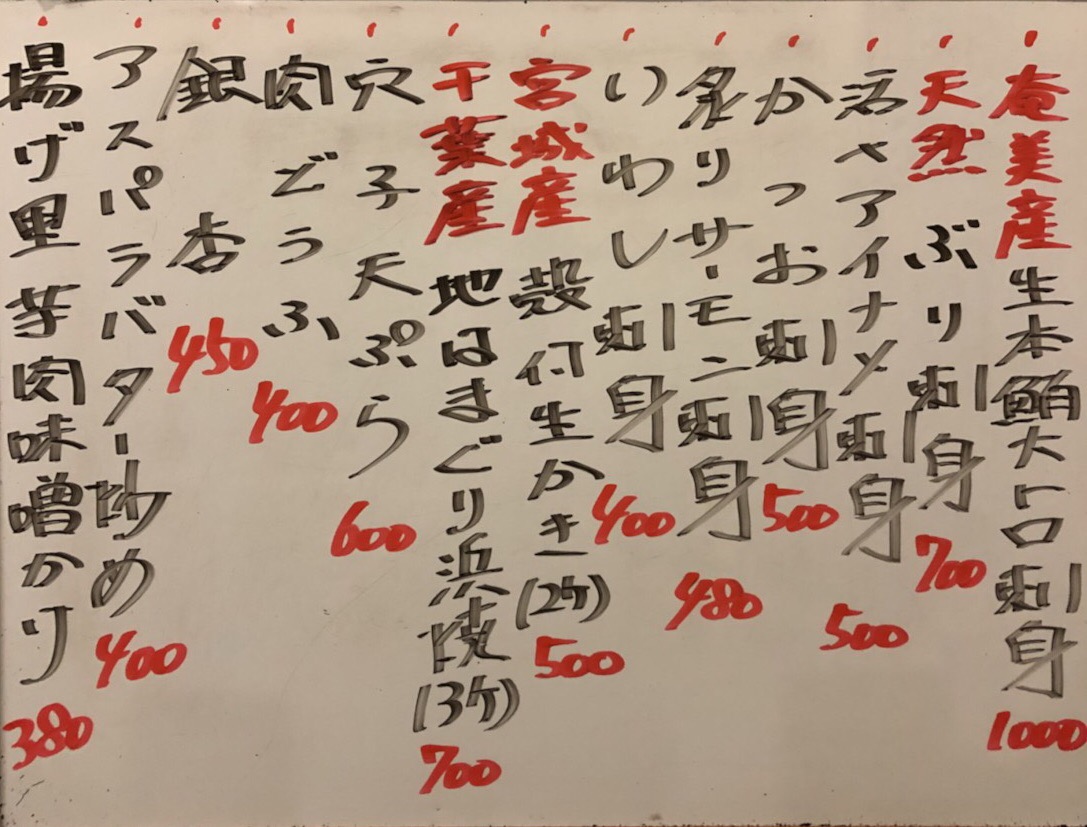 奄美産生本鮪大トロ刺身 1000
天然ぶり刺身 700
活〆アイナメ刺身 500
かつお刺身 500
炙りサーモン刺身 480
いわし刺身 400
宮城産 殻付生かき(2ケ) 500
千葉産 地はまぐり浜焼(3ケ) 700
穴子天ぷら 600
肉どうふ 400
銀杏 450
アスパラバター炒め 400
揚げ里芋肉味噌かけ 380